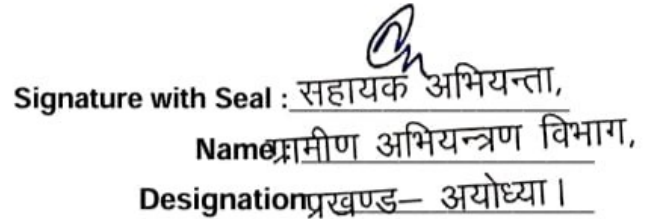 Signature with Seal : सहायक अभियन्ता,
Name: ग्रामीण अभियन्त्रण विभाग,
Designation प्रखण्ड– अयोध्या।